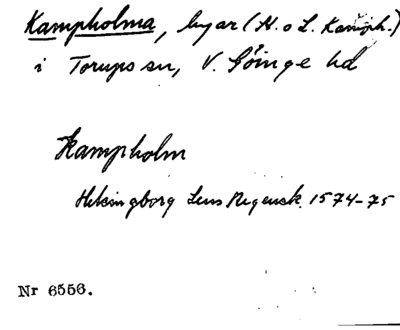 Kampholma, byar (N. o L. Kamph.)
i Torups sn, V. Göinge hd
Kampholm
Helsingborg Läns Regensk. 1574-75
Nr 6556.